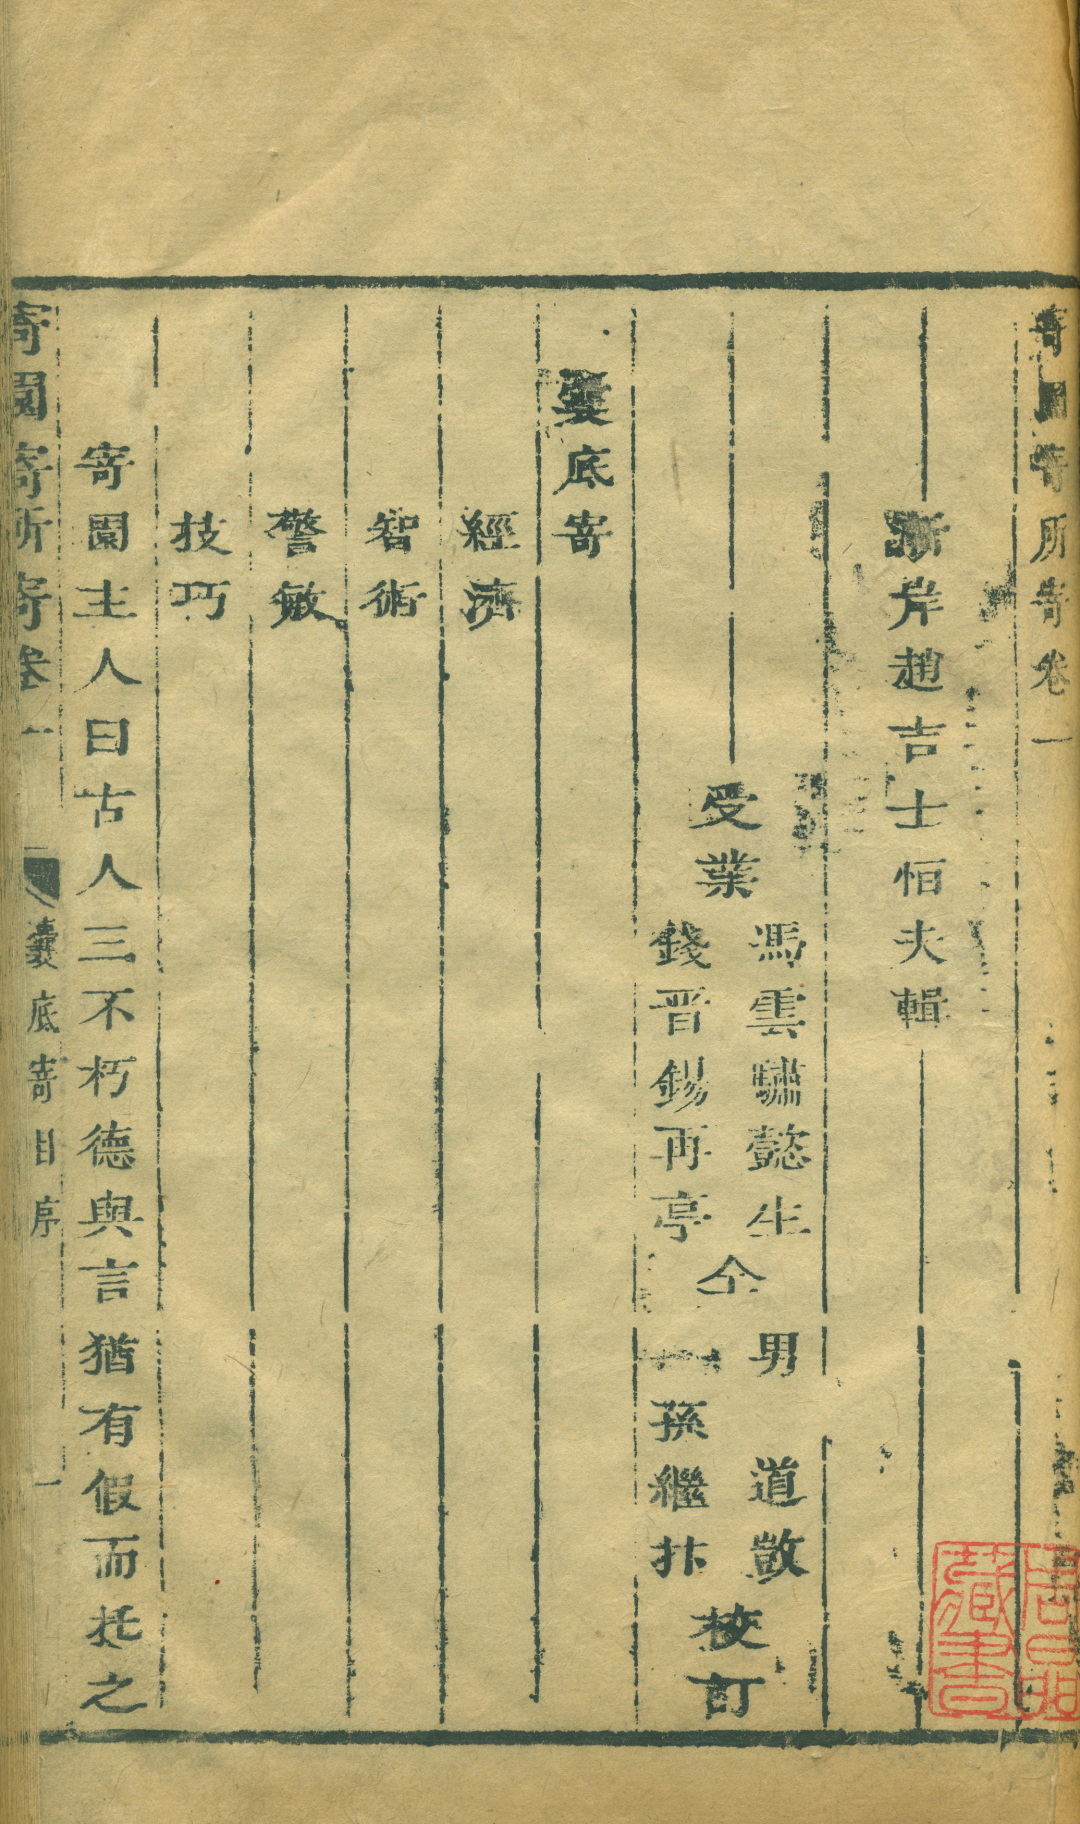 寄園寄所寄卷一
漸岸趙吉士恒夫輯
受業
馮雲驌懿生
錢晋錫再亭
仝
男 道敳
孫繼抃
校訂
囊底寄
經濟
智術
警敏
技巧
寄園主人曰古人三不朽德與言猶有假而托之
寄園寄所寄卷一 囊底寄目序 一
藏書